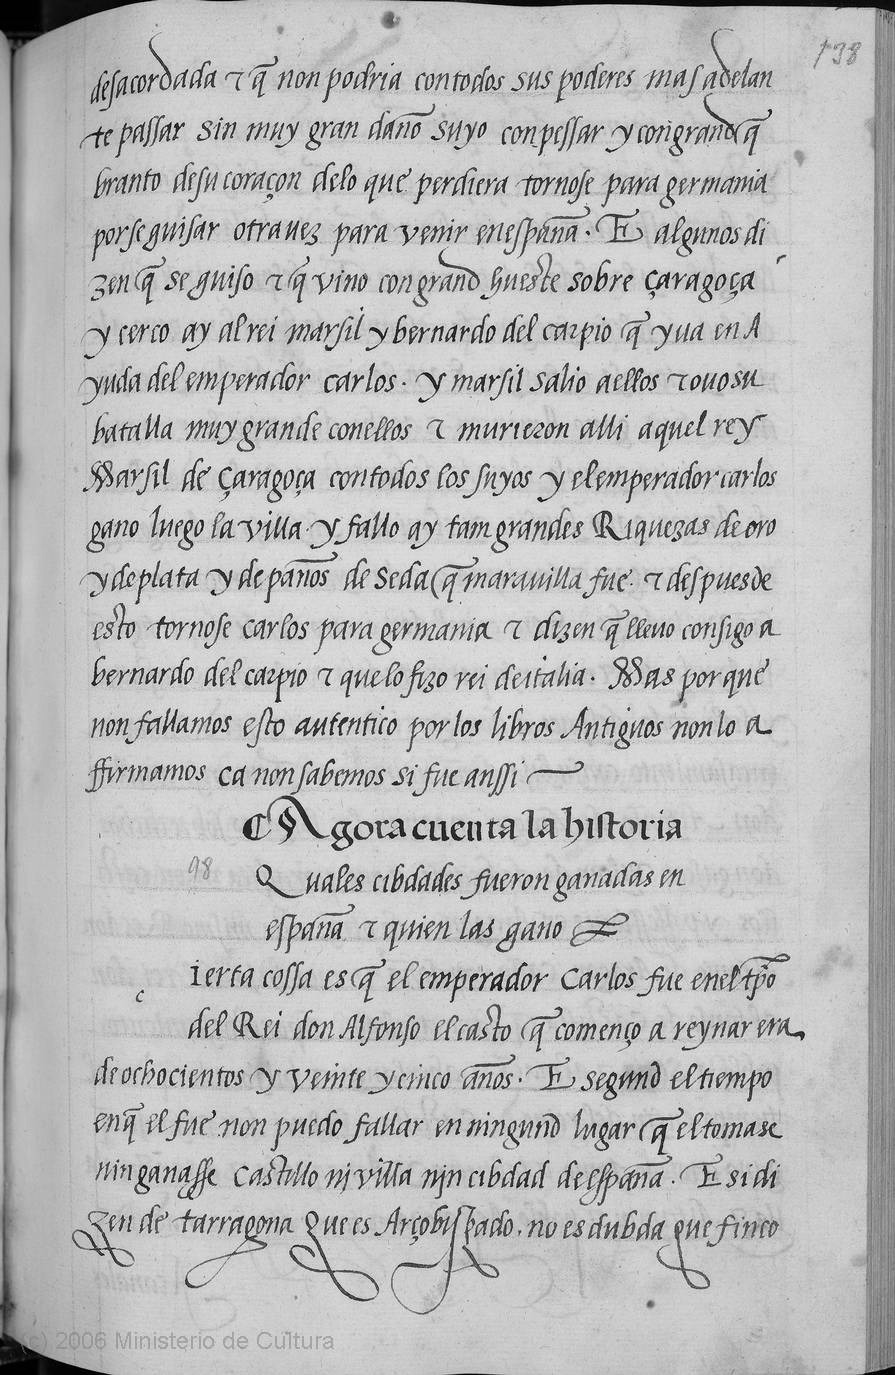 138
desacordada τ q̃ non podria con todos sus poderes mas adelan
te passar sin muy gran daño suyo con pessar y con grand q̃
branto de su coraçon de lo que perdiera tornose para germania
por se guisar otra uez para venir en españa. E algunos di
zen q̃ se guiso τ q̃ vino con grand hueste sobre çaragoça
y cerco ay al rei marsil y bernardo del carpio q̃ yua en A
yuda del emperador carlos. y marsil salio a ellos τ ouo su
batalla muy grande con ellos τ murieron alli aquel rey
Marsil de çaragoça con todos los suyos y el emperador carlos
gano luego la villa. y fallo ay tam grandes Riquezas de oro
y de plata y de paños de seda q̃ marauilla fue. τ despues de
esto tornose carlos para germania τ dizen q̃ lleuo consigo a
bernardo del carpio τ que lo fizo rei de italia. Mas por que
non fallamos esto autentico por los libros Antiguos non lo a
ffirmamos ca non sabemos si fue anssi
Agora cuenta la historia
98
Quales cibdades fueron ganadas en
españa τ quien las gano
c
ierta cossa es q̃ el emperador carlos fue en el tp̃o
del Rei don Alfonso el casto q̃ començo a reynar era
de ochocientos y veinte y cinco años. E segund el tiempo
en q̃ el fue non puedo fallar en ningund lugar q̃ el tomase
nin ganasse castillo nj villa njn cibdad de españa. E si di
zen de tarragona que es Arçobispado. no es dubda que finco
(c) 2006 Ministerio de Cultura